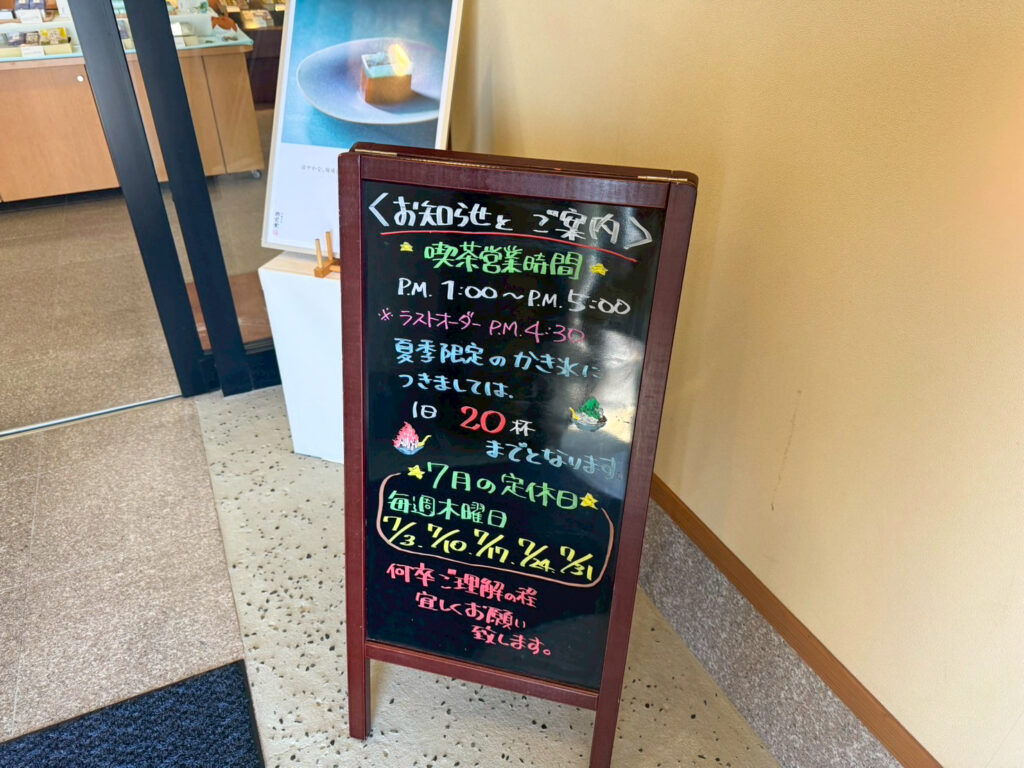 〈お知らせと ご案内〉
喫茶営業時間
P.M. 1:00〜P.M. 5:00
※ラストオーダー P.M. 4:30
夏季限定の かき氷に
つきましては、
1日 20杯
までとなります。
7月の定休日
毎週木曜日
7/3. 7/10. 7/17. 7/24. 7/31
何卒ご理解の程
宜しくお願い
致します。